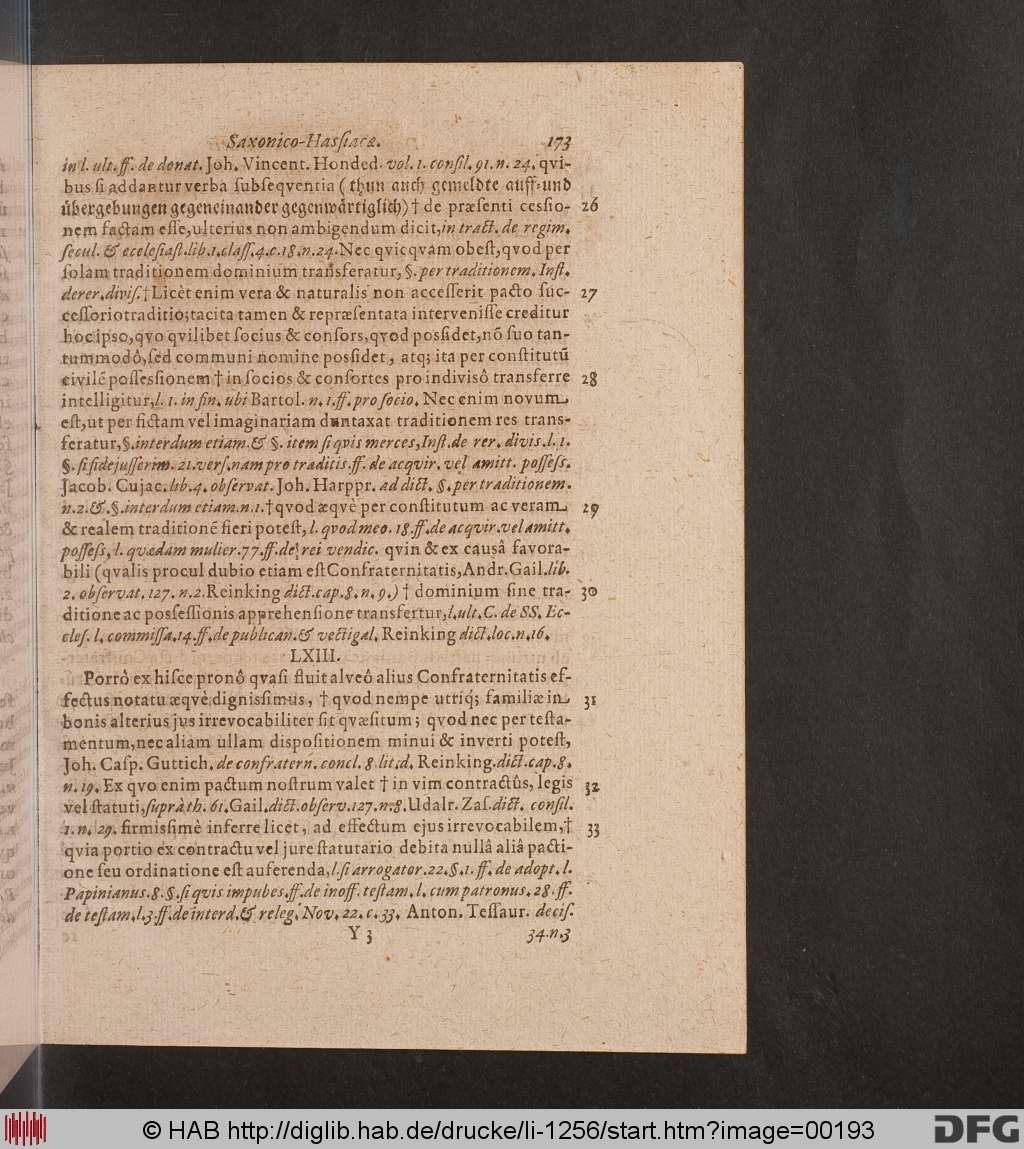 Saxonico-Hassiacæ. 173
in l. ult. ff. de donat. Joh. Vincent. Honded. vol. 1. consil. 91. n. 24. qvi-
bus si addantur verba subseqventia (thun auch gemeldte auff- und
übergebungen gegeneinander gegenwärtiglich) † de præsenti cessio- 26
nem factam esse, ulterius non ambigendum dicit, in tract. de regim.
secul. & ecclesiast. lib. 1. class. 4. c. 18. n. 24. Nec qvicqvam obest, qvod per
solam traditionem dominium transferatur, §. per traditionem. Inst.
de rer. divis. † Licèt enim vera & naturalis non accesserit pacto suc- 27
cessorio traditio; tacita tamen & repræsentata intervenisse creditur
hoc ipso, qvo qvilibet socius & consors, qvod possidet, nõ suo tan-
tummodò, sed communi nomine possidet, atq; ita per constitutũ
civilẽ possessionem † in socios & consortes pro indivisô transferre 28
intelligitur, l. 1. in fin. ubi Bartol. n. 1. ff. pro socio. Nec enim novum
est, ut per fictam vel imaginariam duntaxat traditionem res trans-
feratur, §. interdum etiam. & §. item si qvis merces, Inst. de rer. divis. l. 1.
§. si fidejusserim. 21. vers. nam pro traditis. ff. de acqvir. vel amitt. possess.
Jacob. Cujac. lib. 4. observat. Joh. Harppr. ad dict. §. per traditionem.
n. 2. & §. interdum etiam. n. 1. † qvod æqvè per constitutum ac veram 29
& realem traditionẽ fieri potest, l. qvod meo. 18. ff. de acqvir. vel amitt.
possess, l. quædam mulier. 77. ff. de rei vendic. qvin & ex causâ favora-
bili (qvalis procul dubio etiam est Confraternitatis, Andr. Gail. lib.
2. observat. 127. n. 2. Reinking dict. cap. 8. n. 9.) † dominium sine tra- 30
ditione ac possessionis apprehensione transfertur, l. ult. C. de SS. Ec-
cles. l. commissa. 14. ff. de publican. & vectigal. Reinking dict. loc. n. 16.
LXIII.
Porrò ex hisce pronô qvasi fluit alveô alius Confraternitatis ef-
fectus notatu æqvè dignissimus, † qvod nempe utriq; familiæ in 31
bonis alterius jus irrevocabiliter sit qvæsitum; qvod nec per testa-
mentum, nec aliam ullam dispositionem minui & inverti potest,
Joh. Casp. Guttich. de confratern. concl. 8. lit. d. Reinking. dict. cap. 8.
n. 19. Ex qvo enim pactum nostrum valet † in vim contractûs, legis 32
vel statuti, suprà th. 61. Gail. dict. observ. 127. n. 8. Udalr. Zas. dict. consil.
1. n. 29. firmissimè inferre licet, ad effectum ejus irrevocabilem, † 33
qvia portio ex contractu vel jure statutario debita nullâ aliâ pacti-
one seu ordinatione est auferenda, l. si arrogator. 22. §. 1. ff. de adopt. l.
Papinianus. 8. §. si qvis impubes. ff. de inoff. testam. l. cum patronus. 28. ff.
de testam. l. 3. ff. de interd. & releg. Nov. 22. c. 33. Anton. Tessaur. decis.
Y 3 34. n. 3
© HAB http://diglib.hab.de/drucke/li-1256/start.htm?image=00193
DFG